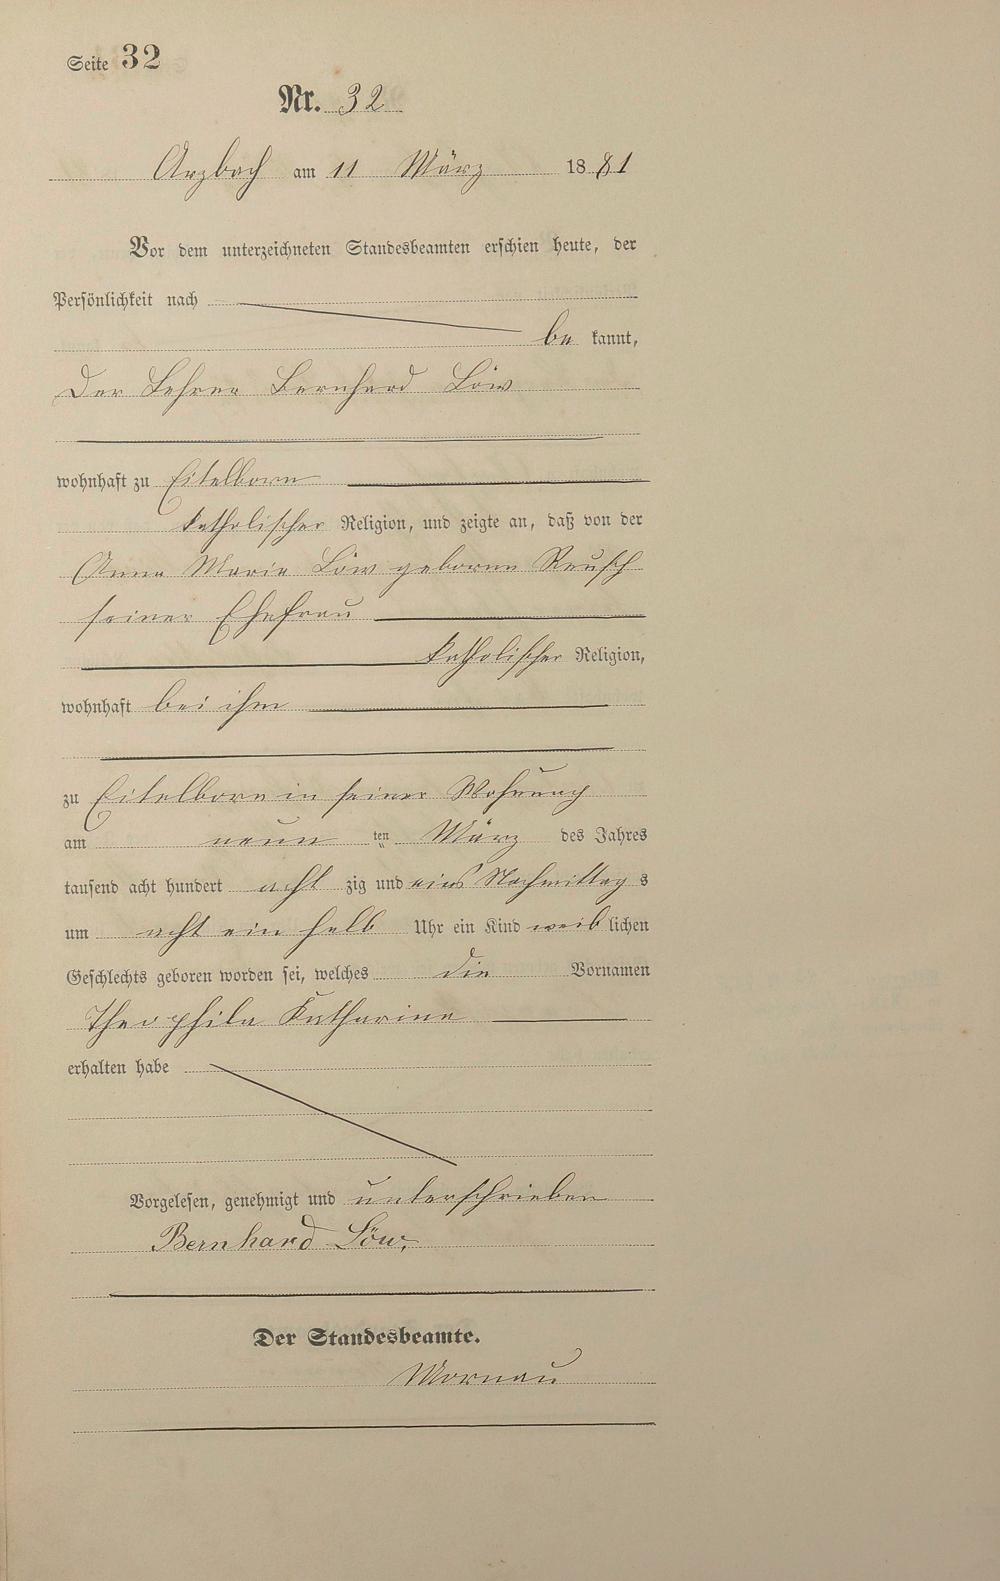 Seite 32
Nr. 32
Arzbach am 11 März 1881
Vor dem unterzeichneten Standesbeamten erschien heute, der
Persönlichkeit nach
be kannt,
Der Lehrer Bernhard Löw
wohnhaft zu Eitelborn
katholischer Religion, und zeigte an, daß von der
Anna Maria Löw geborne Reusch
seiner Ehefrau
katholischer Religion,
wohnhaft bei ihm
zu Eitelborn in seiner Wohnung
am neun ten März des Jahres
tausend acht hundert acht zig und eins Nachmittag s
um acht ein halb Uhr ein Kind weib lichen
Geschlechts geboren worden sei, welches die Vornamen
Theophila Katharina
erhalten habe
Vorgelesen, genehmigt und unterschrieben
Bernhard Löw.
Der Standesbeamte.
Mornau